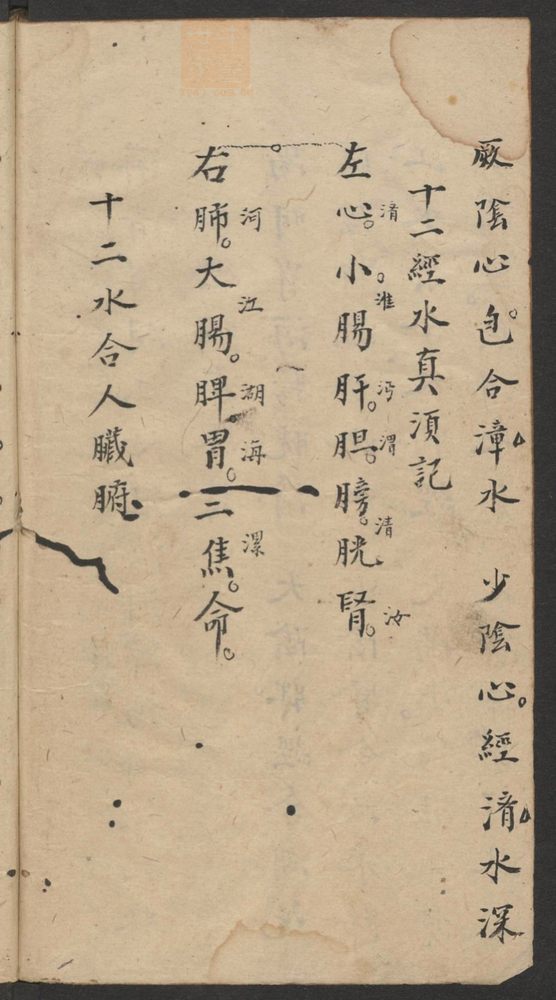 厥陰心包合漳水 少陰心經淯水深
十二經水真須記
左心小腸肝胆膀胱腎
淯淮沔渭清汝
右肺大腸脾胃三焦命
河江湖海漯
十二水合人臟腑